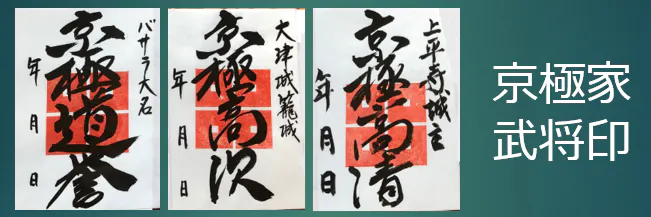 バサラ大名
京極道誉
年 月 日
大津城籠城
京極高次
年 月 日
上平寺城主
京極高清
年 月 日
京極家
武将印